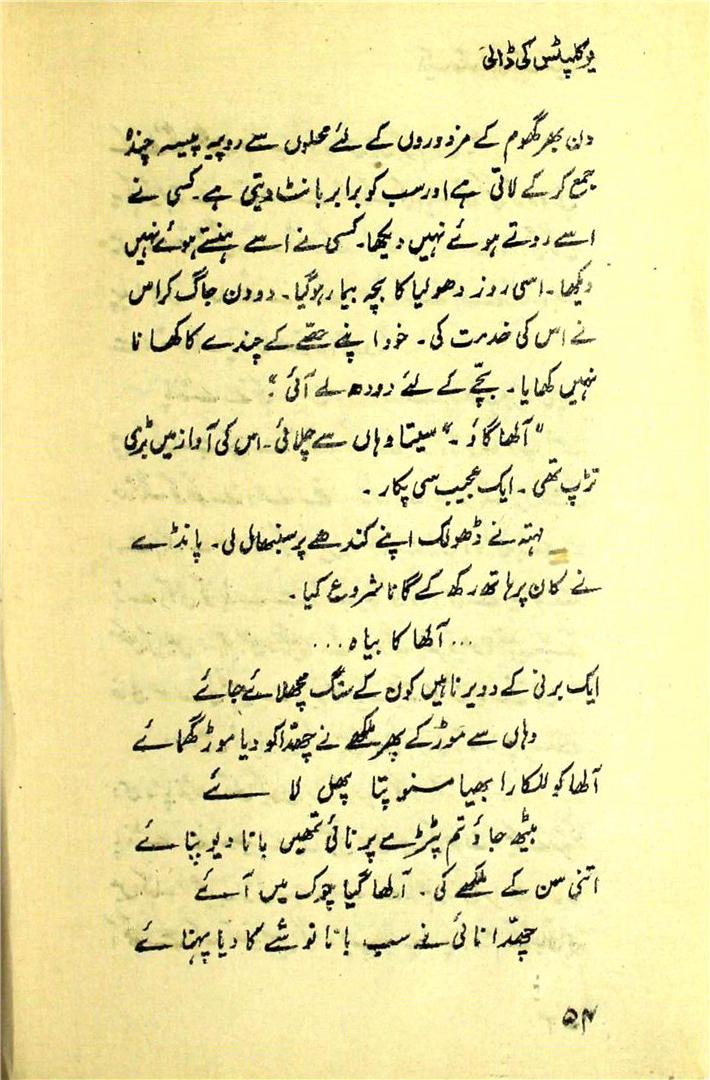 یوکلپٹس کی ڈالی
دن بھر گھوم کے مزدوروں کے لئے محلوں سے روپیہ پیسہ چندہ
جمع کر کے لاتی ہے اور سب کو برابر بانٹ دیتی ہے۔ کسی نے
اسے روتے ہوئے نہیں دیکھا۔ کسی نے اسے ہنستے ہوئے نہیں
دیکھا۔ اسی روز دھولیا کا بچہ بیمار ہو گیا۔ دو دن جاگ کر اس
نے اس کی خدمت کی۔ خود اپنے حصّے کے چندے کا کھانا
نہیں کھایا۔ بچّے کے لئے دودھ لے آئی ”
”آلھا گاؤ۔“ سیتا وہاں سے چلائی۔ اس کی آواز میں بڑی
تڑپ تھی۔ ایک عجیب سی پکار۔
مہتہ نے ڈھولک اپنے کندھے پر سنبھال لی۔ پانڈے
نے کان پر ہاتھ رکھ کے گانا شروع کیا۔
... آلھا کا بیاہ ...
ایک برنی کے دو یرناہیں کون کے سنگ مچھلائے جائے
وہاں سے موڑ کے پھر ملکھے نے چھدّا کو دیا موڑ گھمائے
آلھا کو للکارا بھیا سنو پتا پھل لائے
بیٹھ جاؤ تم پٹڑے پر نائی تمھیں بانا دیو پنائے
اتنی سن کے ملکھے کی۔ آلھا گیا چوک میں آئے
چھدّا نائی نے سب بانا نوشے کا دیا پہنائے
۵۴